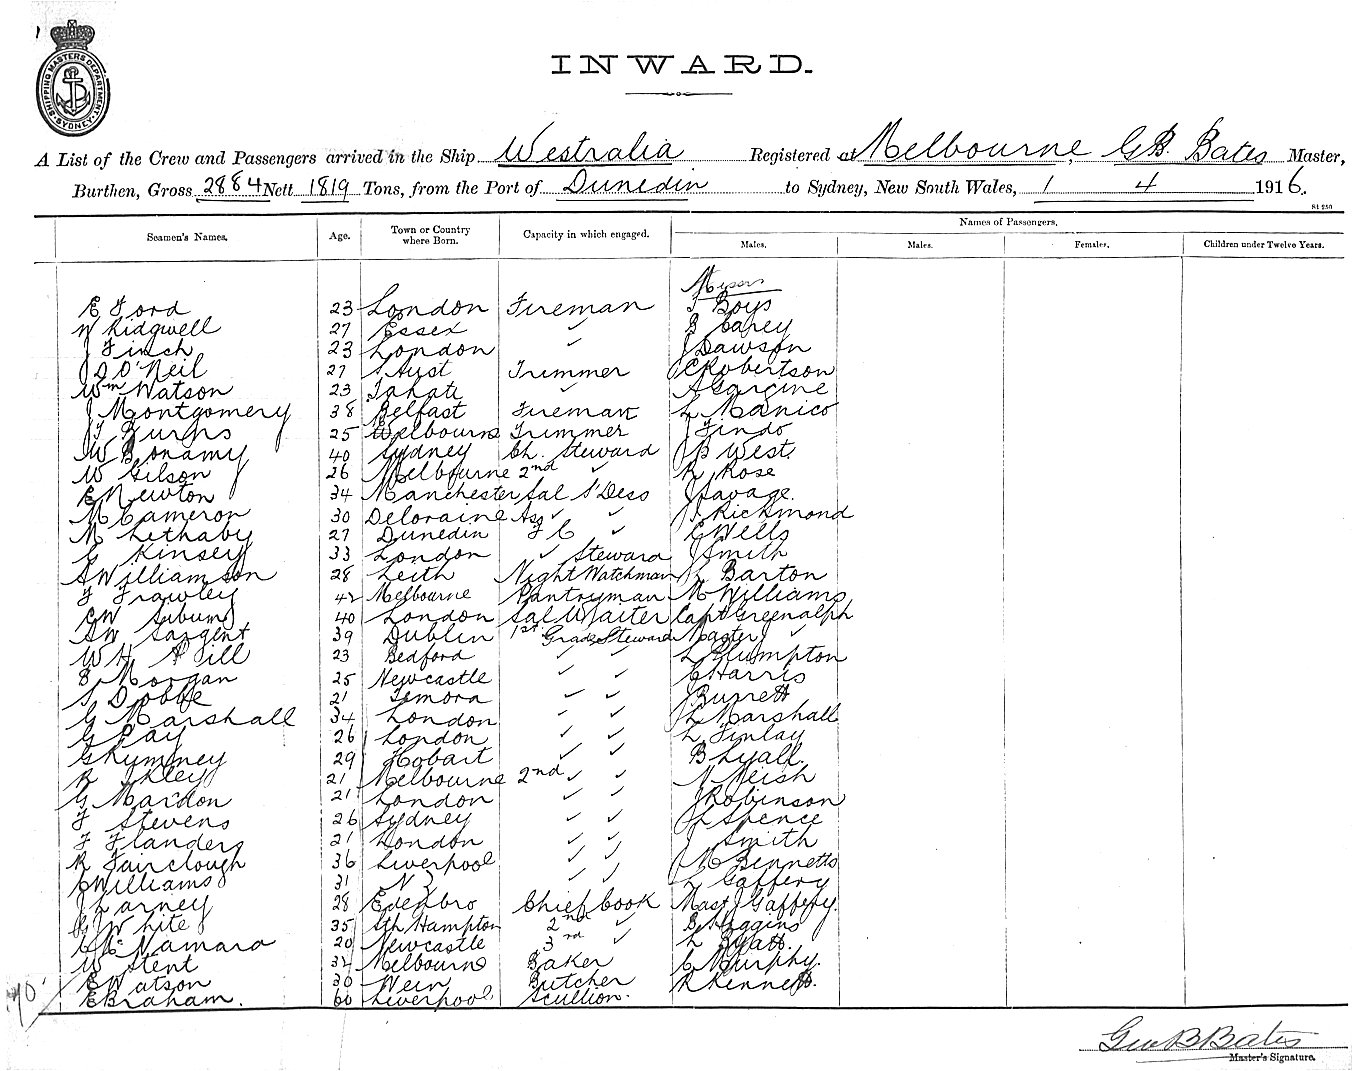 SHIPPING MASTERS DEPARTMENT SYDNEY
INWARD.
A List of the Crew and Passengers arrived in the Ship Westralia Registered at Melbourne, GB Bates Master,
Burthen, Gross 2884 Nett 1819 Tons, from the Port of Dunedin to Sydney, New South Wales, 1 4 1916.
S1 250
Names of Passengers.
Seamen's Names. Age. Town or Country where Born. Capacity in which engaged. Males. Males. Females. Children under Twelve Years.
Messrs
E Ford 23 London Fireman Boys
W Ridgwell 27 Essex ✓ Carey
J Finch 23 London ✓ J Dawson
J D O'Neil 27 S Aust Trimmer C Robertson
Wm Watson 23 Tahati ✓
J Montgomery 38 Belfast Fireman L Manico
J F Burns 25 Melbourne Trimmer J Findo
W Bonamy 40 Sydney Ch. Steward J B West
W Gilson 26 Melbourne 2nd ✓ R Rose
E Newton 34 Manchester Sal S'Dess J Savage.
M Cameron 30 Deloraine Ass ✓ ✓ J Richmond
M Lethaby 27 Dunedin F C ✓ E Wells
G Kinsey 33 London ✓ Steward J Smith
S Williamson 28 Leith Night Watchman J L Barton
F Frawley 42 Melbourne Pantryman M Williams
C W 40 London Sal Waiter Capt Greenalph
S W Sargent 39 Dublin 1st Grade Steward Master ✓
W H 23 Bedford ✓ ✓ L Plumpton
S Morgan 25 Newcastle ✓ ✓ C Harris
S Dobbe 21 Temora ✓ ✓ J Burrett
G Marshall 34 London ✓ ✓ L Marshall
G Pay 26 London ✓ ✓ L Finlay
G Rumney 29 Hobart ✓ ✓ B Lyall
R Ikley 21 Melbourne 2nd ✓ ✓ N Neish
G Mardon 21 London ✓ ✓ J Robinson
F Stevens 26 Sydney ✓ ✓ J L Spence
F Flanders 21 London ✓ ✓ J Smith
R Fairclough 36 Liverpool ✓ ✓ J M Bennetts
C Williams 31 N Z ✓ ✓ L Gaffery
J Larney 28 Edenbro Chief Cook Mast J Gaffery.
G J White 35 Sth Hampton 2nd ✓ E Higgins
C McNamara 20 Newcastle 3rd ✓ L Byatt.
W Stent 32 Melbourne Baker C Murphy.
E Watson 30 Wein Butcher R Kennett.
E Braham. 60 Liverpool Scullion.
70
Geo B Bates
Master's Signature.